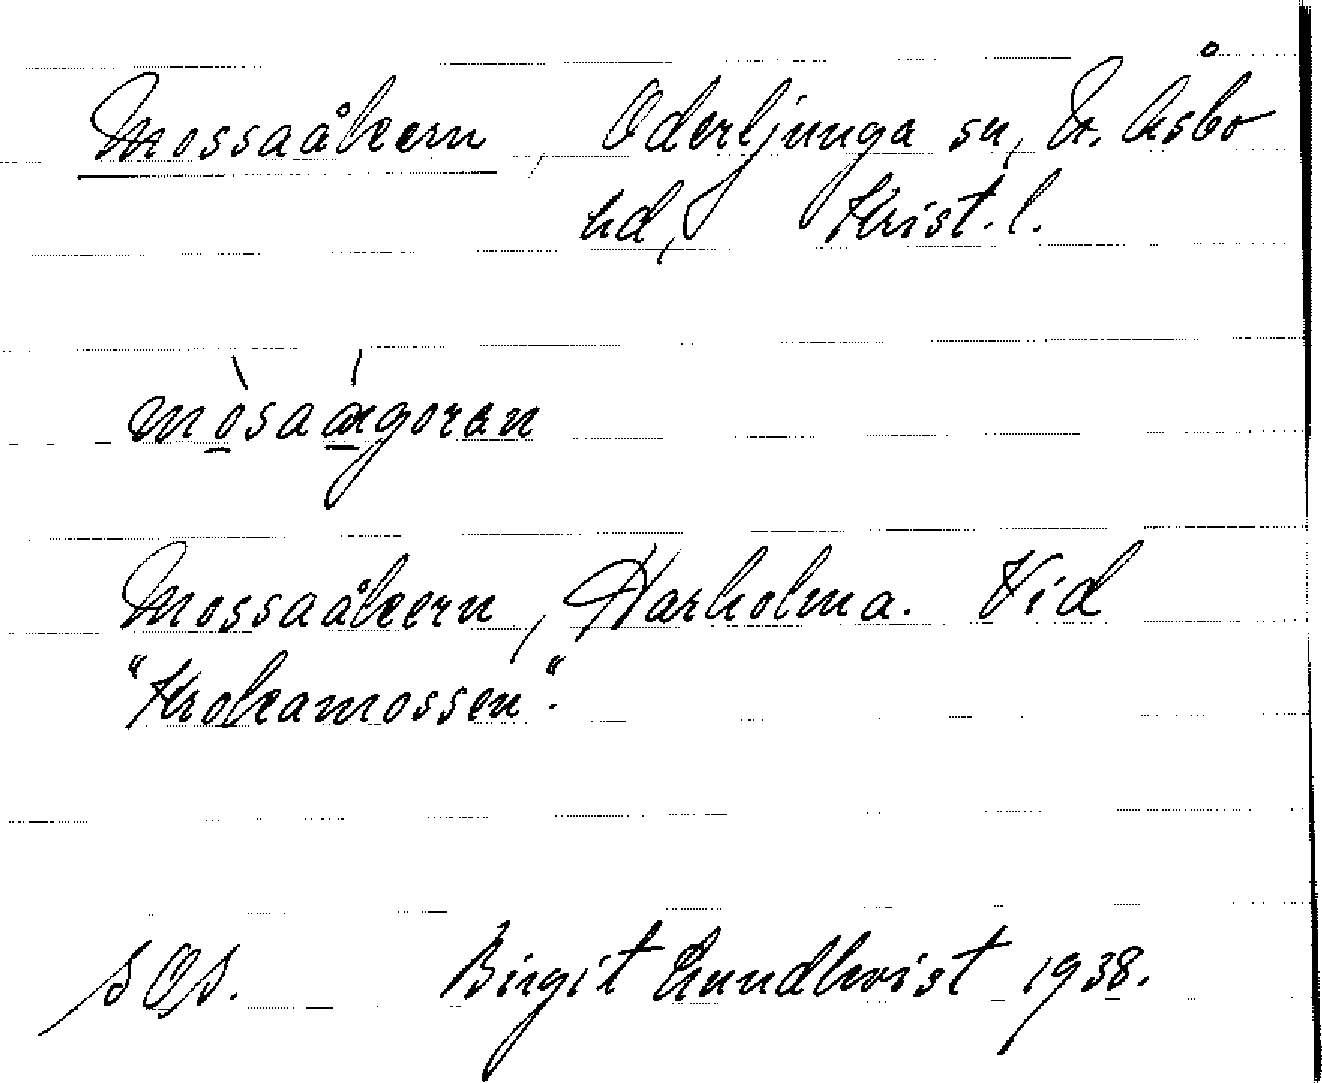 Mossaåkern, Oderljunga sn, N. Åsbo
hd, Krist. l.
mòsaágoran
Mossaåkern, Harholma. Vid
"Krokamossen".
s Os. Birgit Lundkvist 1938.